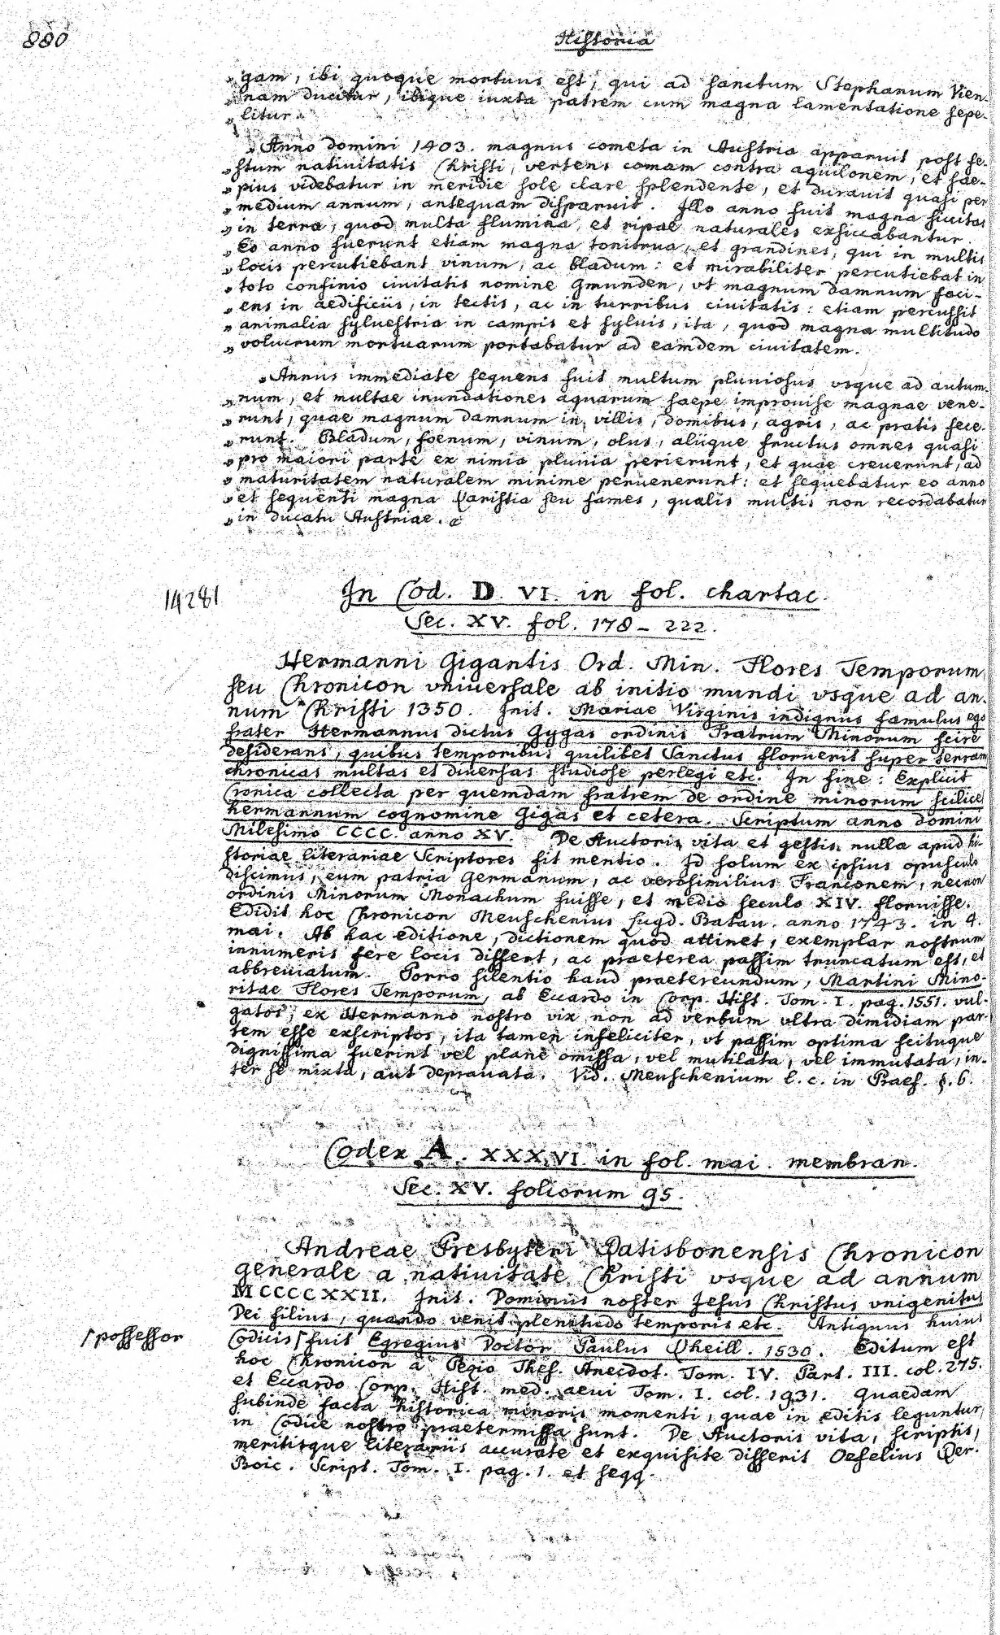 880
Historia
" gam, ibi quoque mortuus est, qui ad sanctum Stephanum Vien-
" nam ducitur, ibique iuxta patrem cum magna lamentatione sepe-
" litur.
" Anno domini 1403. magnus cometa in Austria apparuit post fe-
" stum nativitatis Christi, vertens comam contra aquilonem, et sae-
" pius videbatur in meridie sole clare splendente, et durauit quasi per
" medium annum, antequam disparuit. Illo anno fuit magna siccitas
" in terra, quod multa flumina, et ripae naturales exsiccabantur.
" Eo anno fuerunt etiam magna tonitrua, et grandines, qui in multis
" locis percutiebant vinum, ac bladum: et mirabiliter percutiebat in
" toto confinio ciuitatis nomine Gmunden, vt magnum damnum faci-
" ens in aedificiis, in tectis, ac in turribus ciuitatis: etiam percussit
" animalia syluestria in campis et syluis, ita, quod magna multitudo
" volucrum mortuarum portabatur ad eamdem ciuitatem.
" Annus immediate sequens fuit multum pluuiosus vsque ad autum-
" num, et multae inundationes aquarum saepe improuise magnae vene-
" runt, quae magnum damnum in villis, domibus, agris, ac pratis fece-
" runt. Bladum, foenum, vinum, olus, aliique fructus omnes quasi
" pro maiori parte ex nimia pluuia perierunt, et quae creuerunt, ad
" maturitatem naturalem minime peruenerunt: et sequebatur eo anno
" et sequenti magna Caristia seu fames, qualis multis non recordabatur
" in ducatu Austriae.
14281
In Cod. D. VI. in fol. chartac.
Sec. XV. fol. 178 - 222.
Hermanni Gigantis Ord. Min. Flores Temporum
seu Chronicon vniuersale ab initio mundi vsque ad an-
num Christi 1350. Init. Mariae Virginis indignus famulus ego
frater Hermannus dictus Gygas ordinis Fratrum Minorum scire
desiderans, quibus temporibus quilibet Sanctus floruerit super terram
chronicas multas et diuersas studiose perlegi etc. In fine: Explicit
Cronica collecta per quemdam fratrem de ordine minorum scilicet
hermannum cognomine Gigas et cetera. Scriptum anno domini
Milesimo CCCC. anno XV. De Auctoris vita et gestis nulla apud hi-
storiae literariae Scriptores fit mentio. Id solum ex ipsius opusculo
discimus, eum patria Germanum, ac verosimilius Franconem, necnon
ordinis Minorum Monachum fuisse, et medio seculo XIV. floruisse.
Edidit hoc Chronicon Meuschenius Lugd. Batau. anno 1743. in 4.
mai. Ab hac editione, dictionem quod attinet, exemplar nostrum
innumeris fere locis differt, ac praeterea passim truncatum est, et
abbreuiatum. Porro silentio haud praetereundum, Martini Mino-
ritae Flores Temporum, ab Eccardo in Corp. Hist. Tom. I. pag. 1551. vul-
gatos, ex Hermanno nostro vix non ad verbum vltra dimidiam par-
tem esse exscriptos, ita tamen infeliciter, vt passim optima scituque
dignissima fuerint vel plane omissa, vel mutilata, vel immutata, in-
ter se mixta, aut deprauata. Vid. Meuschenium l. c. in Praef. §. 6.
Codex A. XXXVI. in fol. mai. membran.
Sec. XV. foliorum 95.
Andreae Presbyteri Ratisbonensis Chronicon
generale a nativitate Christi vsque ad annum
MCCCCXXII. Init. Dominus noster Jesus Christus vnigenitus
Dei filius, quando venit plenitudo temporis etc. Antiquus huius
/possessor
Codicis / fuit Egregius Doctor Paulus Rheill. 1530. Editum est
hoc Chronicon a Pezio Thes. Anecdot. Tom. IV. Part. III. col. 275.
et Eccardo Corp. Hist. med. aeui Tom. I. col. 1931. Quaedam
subinde facta historica minoris momenti, quae in editis leguntur,
in Codice nostro praetermissa sunt. De Auctoris vita, scriptis,
meritisque literariis accurate et exquisite disserit Oefelius Rer.
Boic. Script. Tom. I. pag. 1. et seqq.